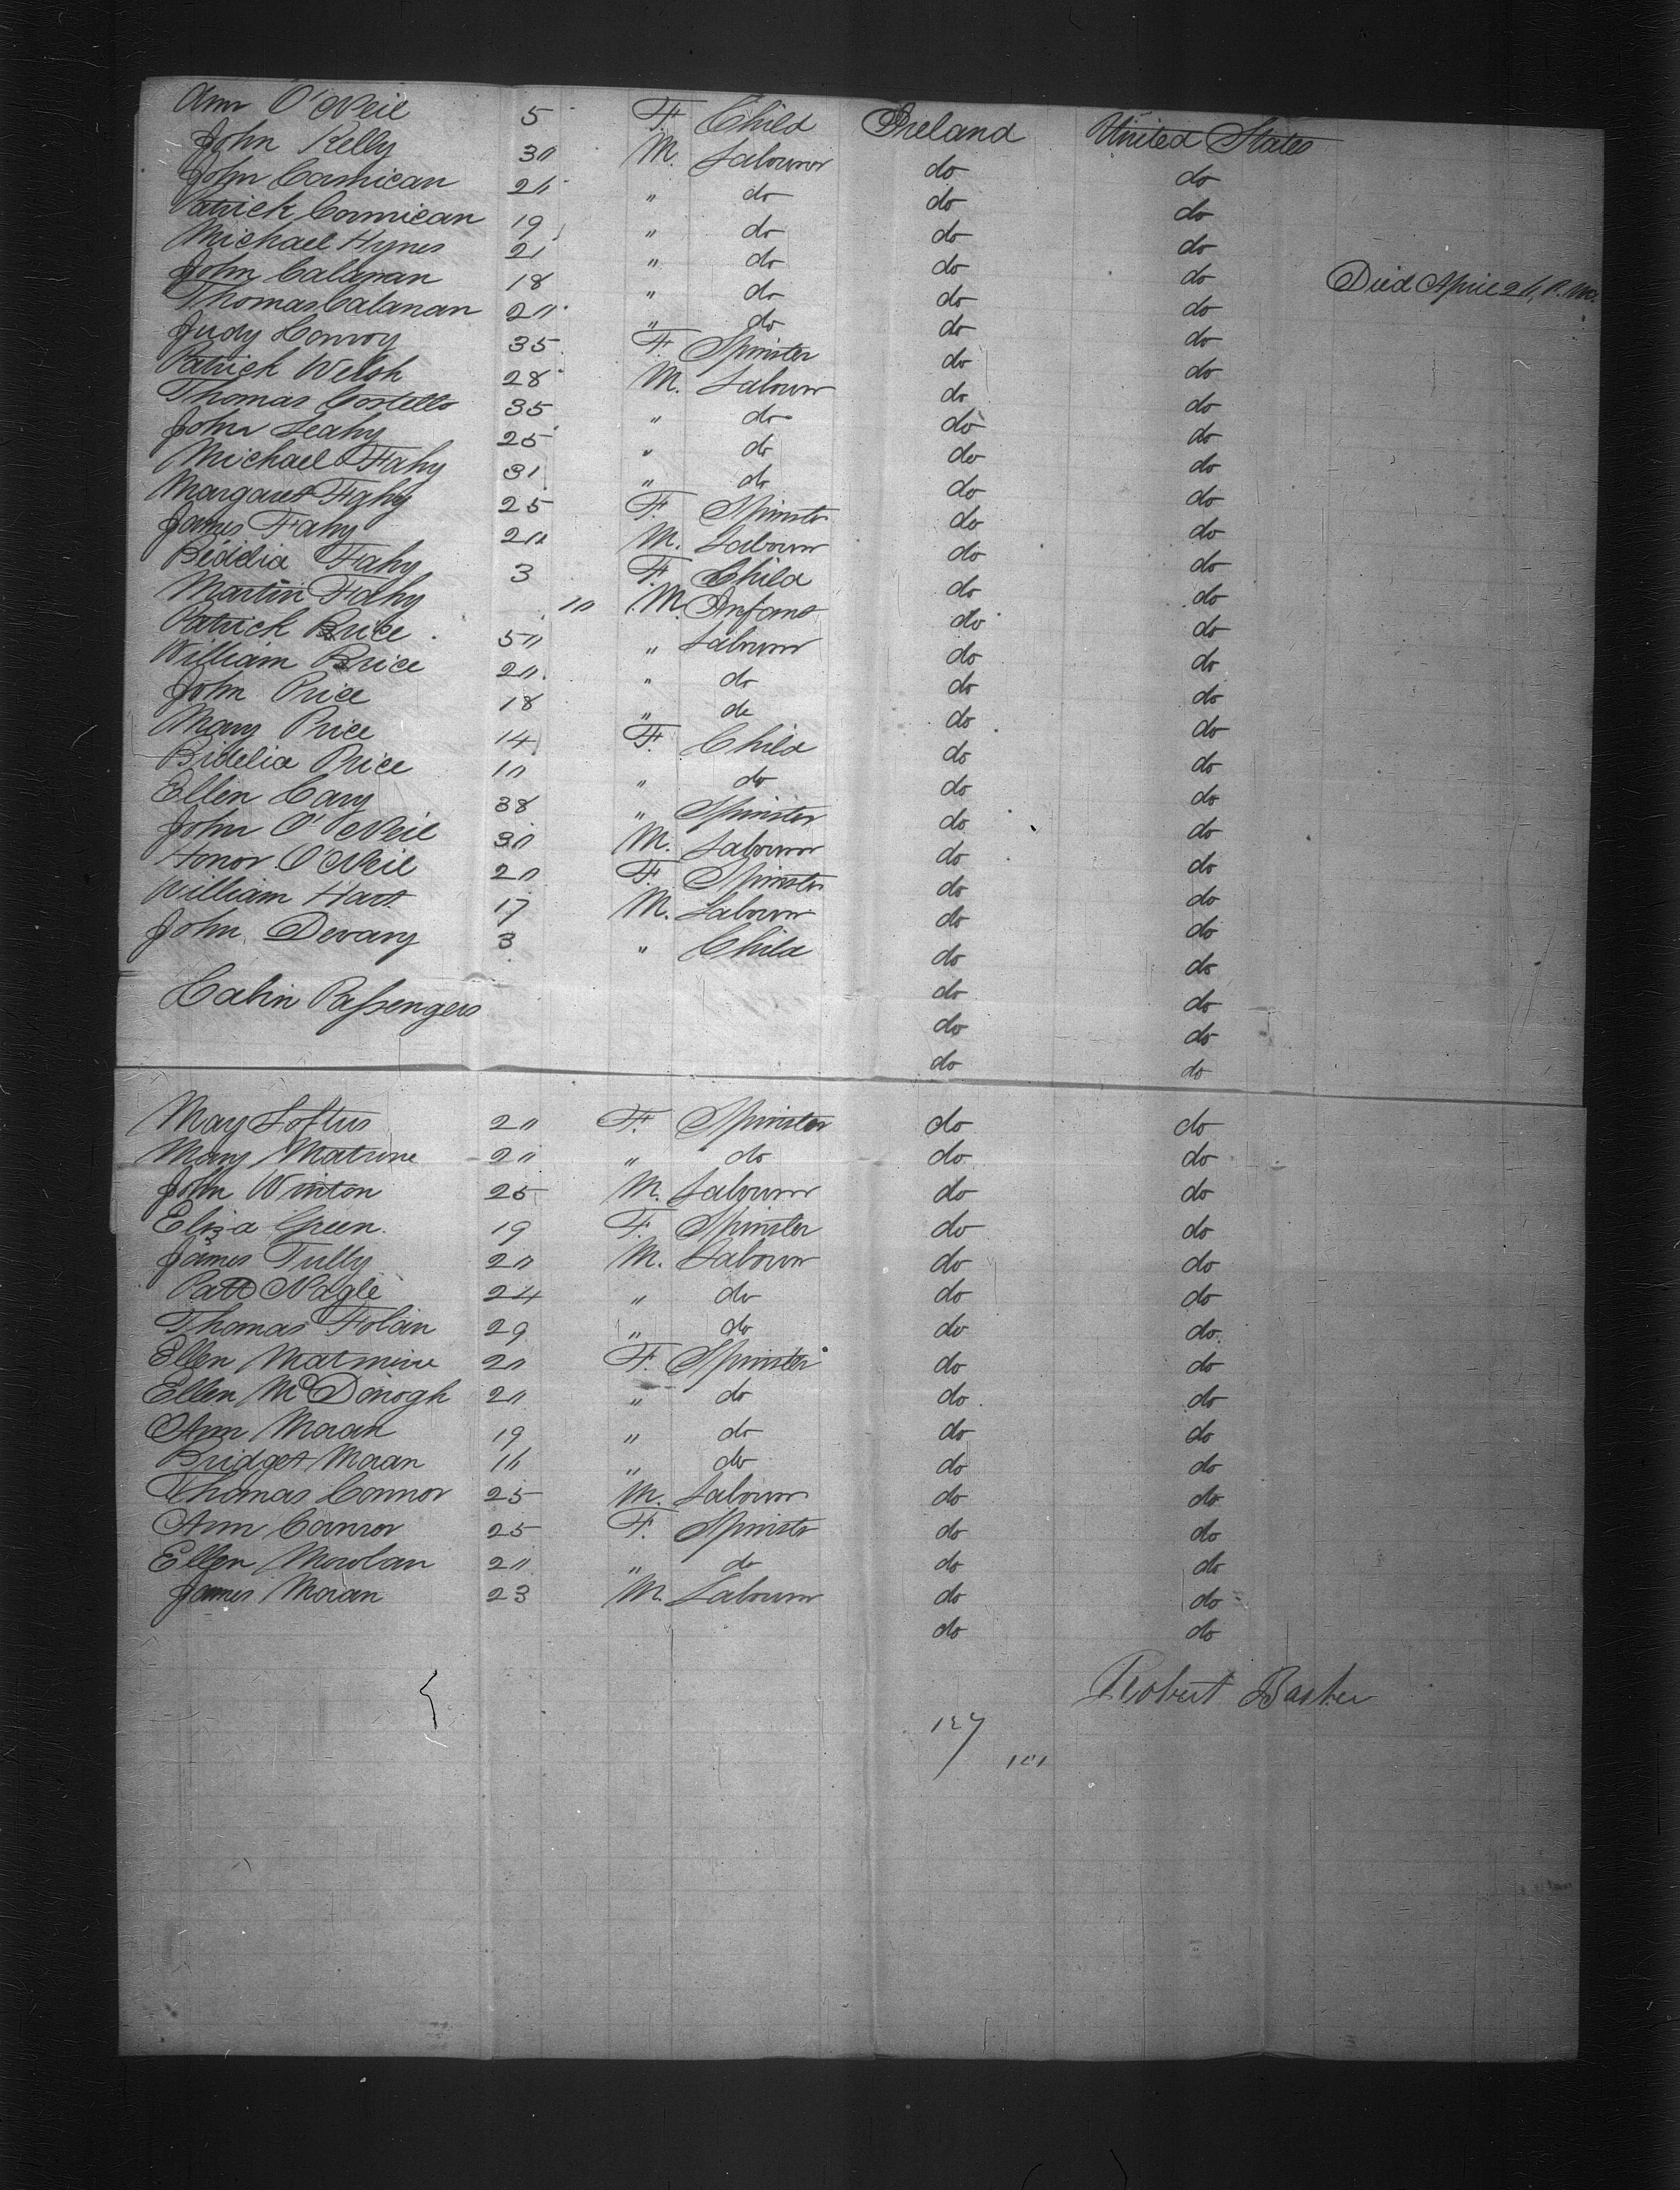 Ann O'Neil 5 F. Child Ireland United States
John Kelly 30 M. Labourer do do
John Cornican 26 " do do do
Patrick Cornican 19 " do do do
Michael Hynes 21 " do do do Died April 26, P.M.
John Calanan 18 " do do do
Thomas Calanan 20 " do do do
Judy Conroy 35 F. Spinster do do
Patrick Welsh 28 M. Labourer do do
Thomas Costello 35 " do do do
John Leahy 25 " do do do
Michael Fahy 31 " do do do
Margaret Fahy 25 F. Spinster do do
James Fahy 20 M. Labourer do do
Biddelia Fahy 3 F. Child do do
Martin Fahy 10 M. Infant do do
Patrick Price 50 " Labourer do do
William Price 20 " do do do
John Price 18 " do do do
Mary Price 14 F. Child do do
Bidelia Price 10 " do do do
Ellen Cary 38 " Spinster do do
John O'Neil 30 M. Labourer do do
Honor O'Neil 20 F. Spinster do do
William Hart 17 M. Labourer do do
John Devany 3 " Child do do
Cabin Passengers do do
do do
do do
May Loftus 20 F. Spinster do do
Mary 20 " do do do
John Winton 25 M. Labourer do do
Eliza Green 19 F. Spinster do do
James Tully 20 M. Labourer do do
Patt Nagle 24 " do do do
Thomas Folan 29 " do do do
Ellen 20 F. Spinster do do
Ellen McDonogh 20 " do do do
Ann Moran 19 " do do do
Bridget Moran 16 " do do do
Thomas Connor 25 M. Labourer do do
Ann Connor 25 F. Spinster do do
Ellen 20 " do do do
James Moran 23 M. Labourer do do
do do
Robert
127
101